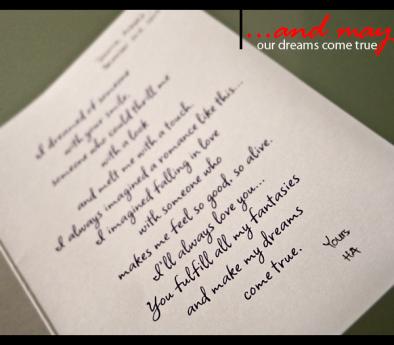 ...and may
our dreams come true
I dreamed of someone
with your smile,
someone who could thrill me
with a look
and melt me with a touch.
I always imagined a romance like this...
I imagined falling in love
with someone who
makes me feel so good, so alive.
I'll always love you...
You fulfill all my fantasies
and make my dreams
come true.
Yours
HA